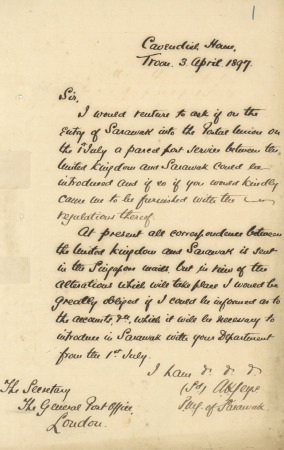 1
Cavendish House,
Troon. 3 April 1897.
Sir,
I would venture to ask if on the
Entry of Sarawak into the Postal Union on
the 1st July a parcel post service between the
United Kingdom and Sarawak could be
introduced and if so if you would kindly
cause me to be furnished with the
regulations thereof.
At present all correspondence between
the United Kingdom and Sarawak is sent
in the Singapore mails but in view of the
alterations which will take place I would be
greatly obliged if I could be informed as to
the accounts, &c, which it will be necessary to
introduce in Sarawak with your Department
from the 1st July.
I am &c &c &c
(Sd)
of Sarawak
The Secretary
The General Post Office,
London.